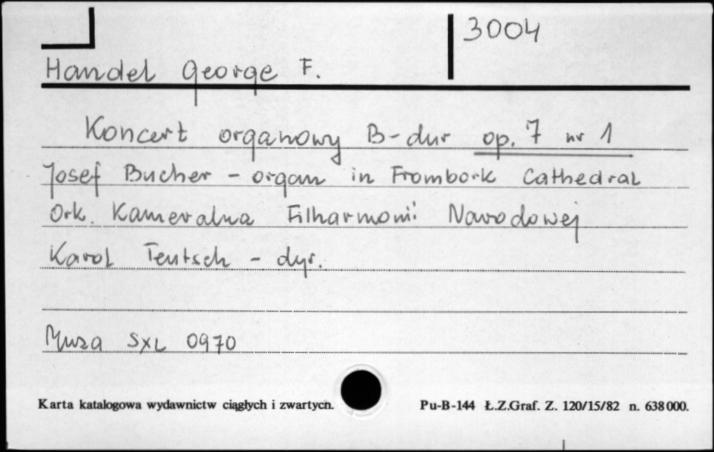 3004
Handel George F.
Koncert organowy B-dur op. 7 nr 1
Josef Bucher - organ in Frombork Cathedral
Ork. Kameralna Filharmonii Narodowej
Karol Teutsch - dyr.
Muza SXL 0970
Karta katalogowa wydawnictw ciągłych i zwartych. Pu-B-144 Ł.Z.Graf. Z. 120/15/82 n. 638000.